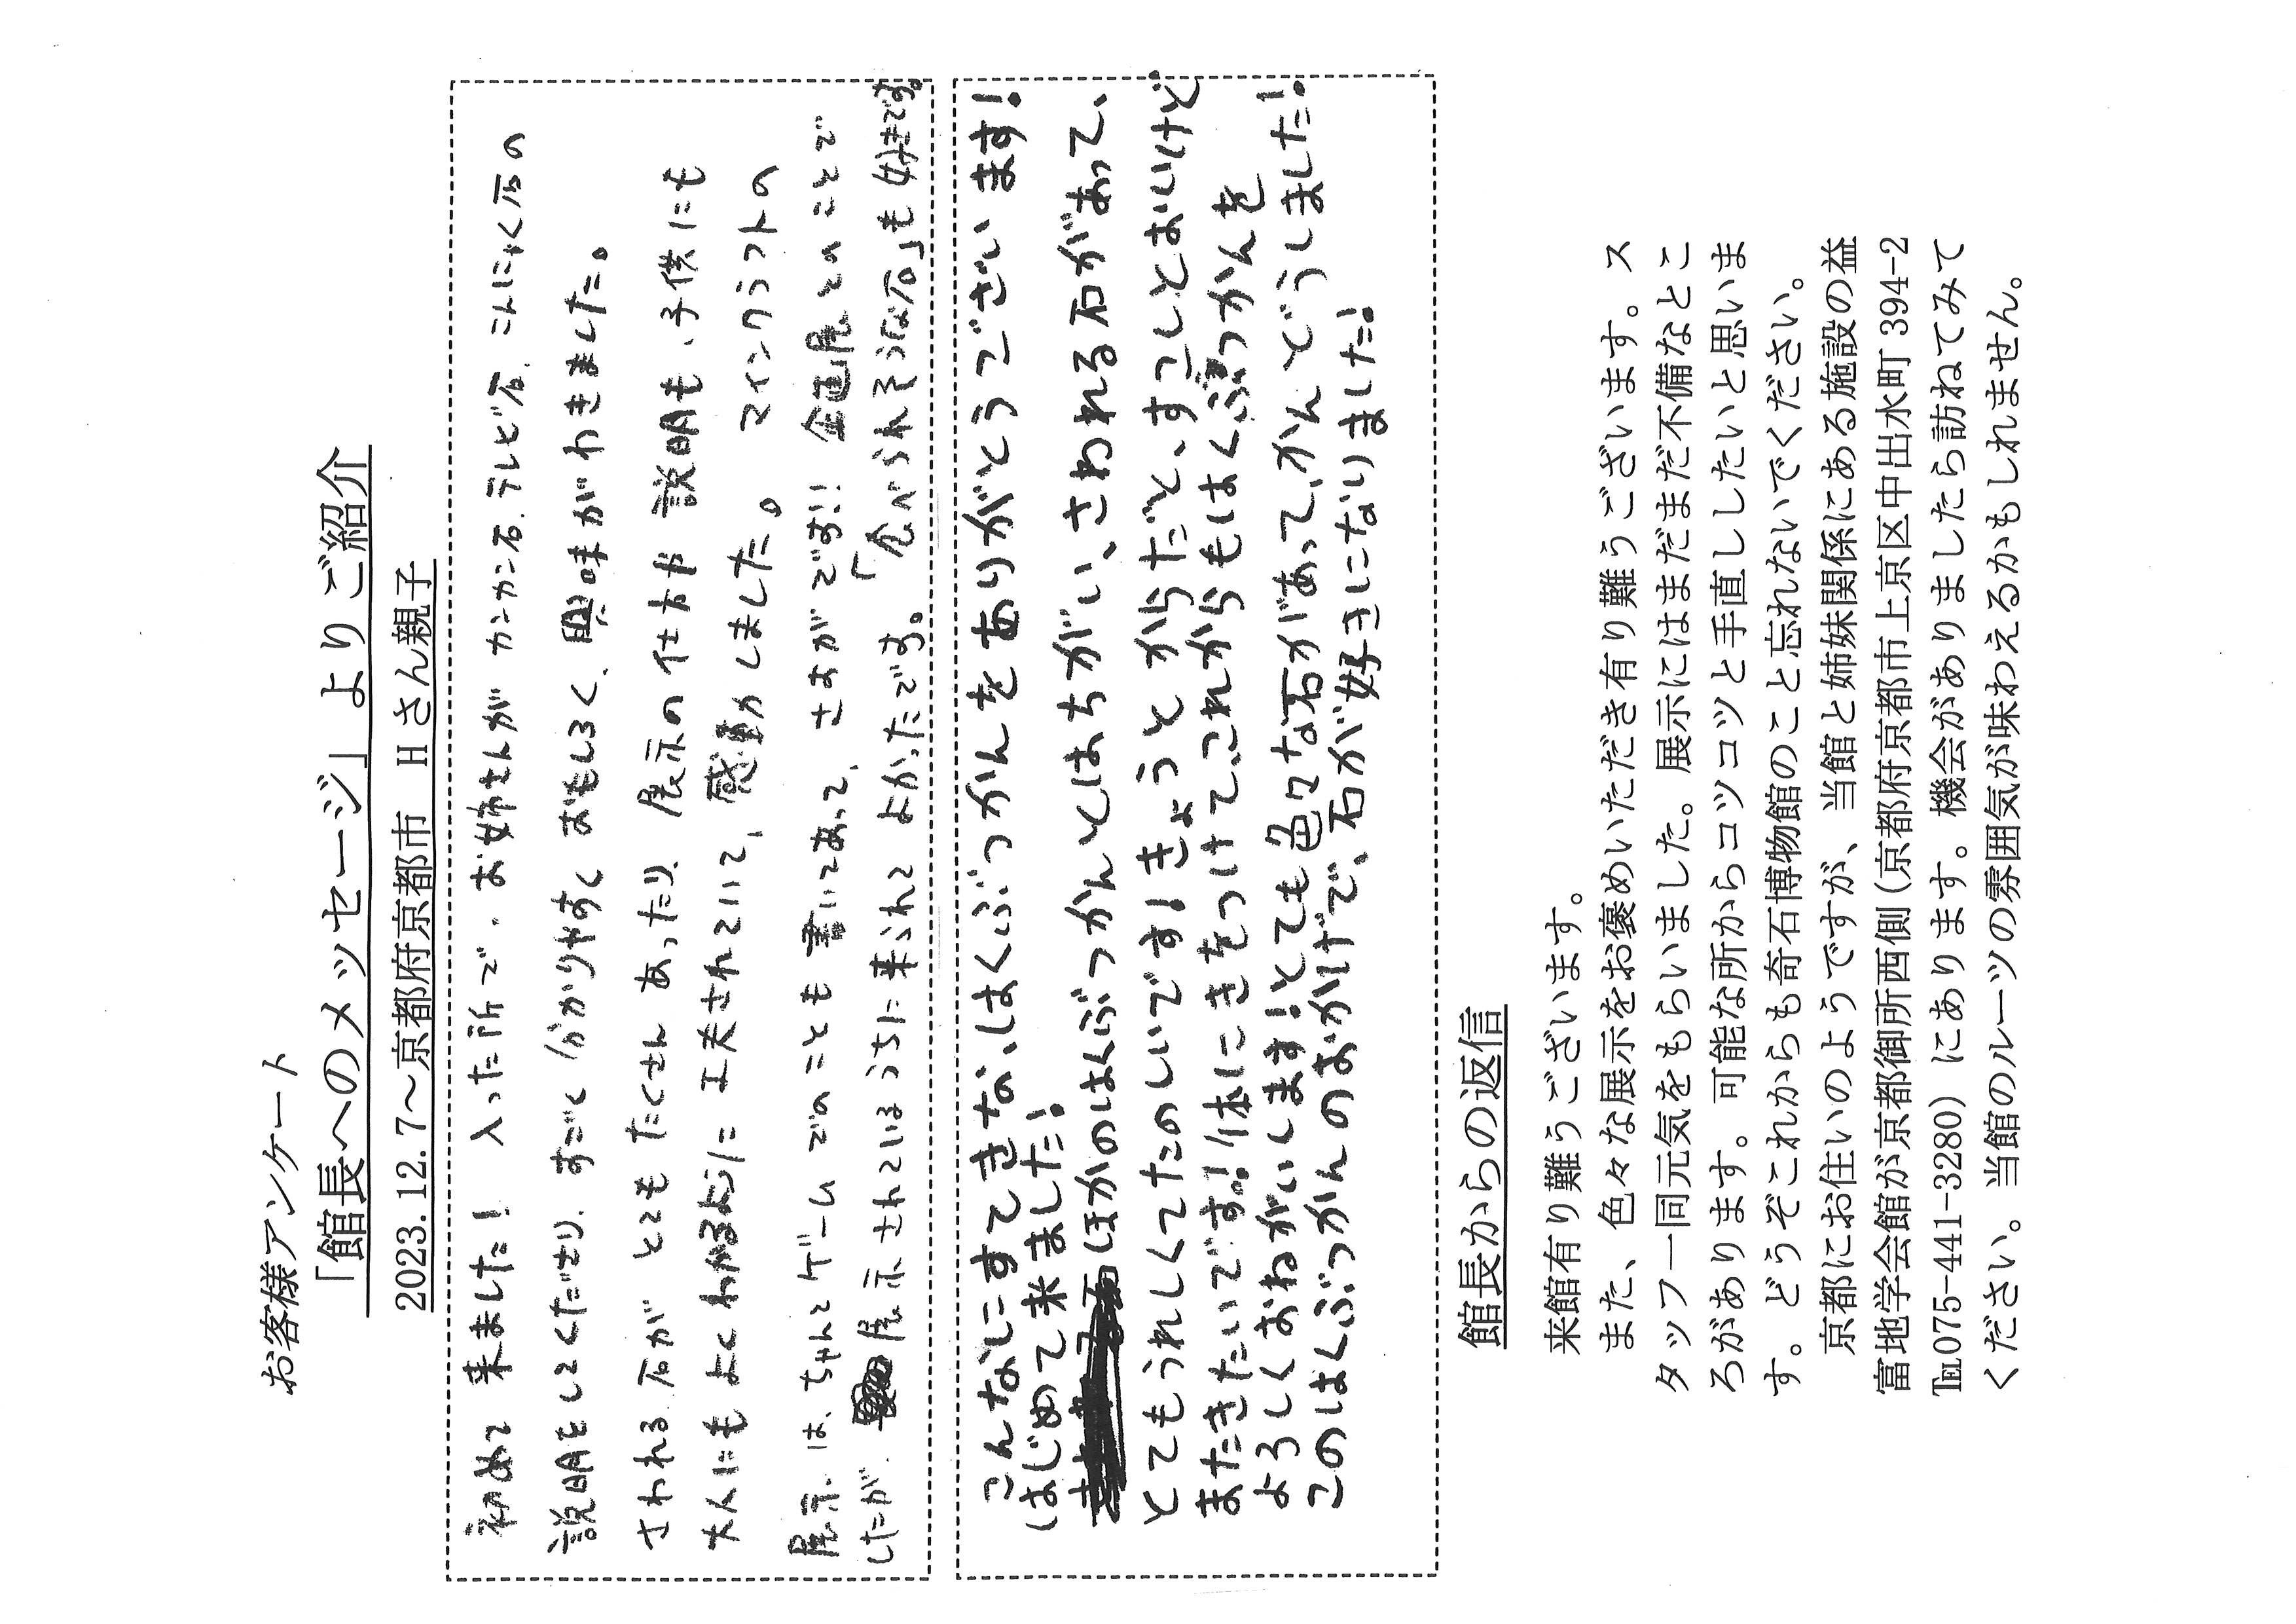 お客様アンケート
「館長へのメッセージ」よりご紹介
2023.12.7～京都府京都市　Hさん親子
初めて来ました！　入った所で、お姉さんが カンカン石、テレビ石、こんにゃく石の
説明をしてくださり、すごく分かりやすく おもしろく、興味がわきました。
さわれる石が とてもたくさん あったり、展示の仕方や 説明も、子供にも
大人にもよくわかるように工夫されていて、感動しました。　マインクラフトの
展示は、ちゃんとゲームでのことも書いてあって、さすがです!! 企画展とのことで
したが、展示されているうちに来られて よかったです。「食べられそうな石」も好きです。
こんなにすてきな、はくぶつかんをありがとうございます！
はじめて来ました！
ほかのはくぶつかんとはちがい、さわれる石があって、
とてもうれしくてたのしいです！きょうとからだと、すこしとおいけど
またきたいです！体にきをつけて、これからもはくぶつかんを
よろしくおねがいします！とても色々な石があって、かんどうしました！
このはくぶつかんのおかげで、石が好きになりました！
館長からの返信
来館有り難うございます。
また、色々な展示をお褒めいただき有り難うございます。ス
タッフ一同元気をもらいました。展示にはまだまだ不備なとこ
ろがあります。可能な所からコツコツと手直ししたいと思いま
す。どうぞこれからも奇石博物館のこと忘れないでください。
京都にお住いのようですが、当館と姉妹関係にある施設の益
富地学会館が京都御所西側(京都府京都市上京区中出水町 394-2
℡075-441-3280）にあります。機会がありましたら訪ねてみて
ください。当館のルーツの雰囲気が味わえるかもしれません。